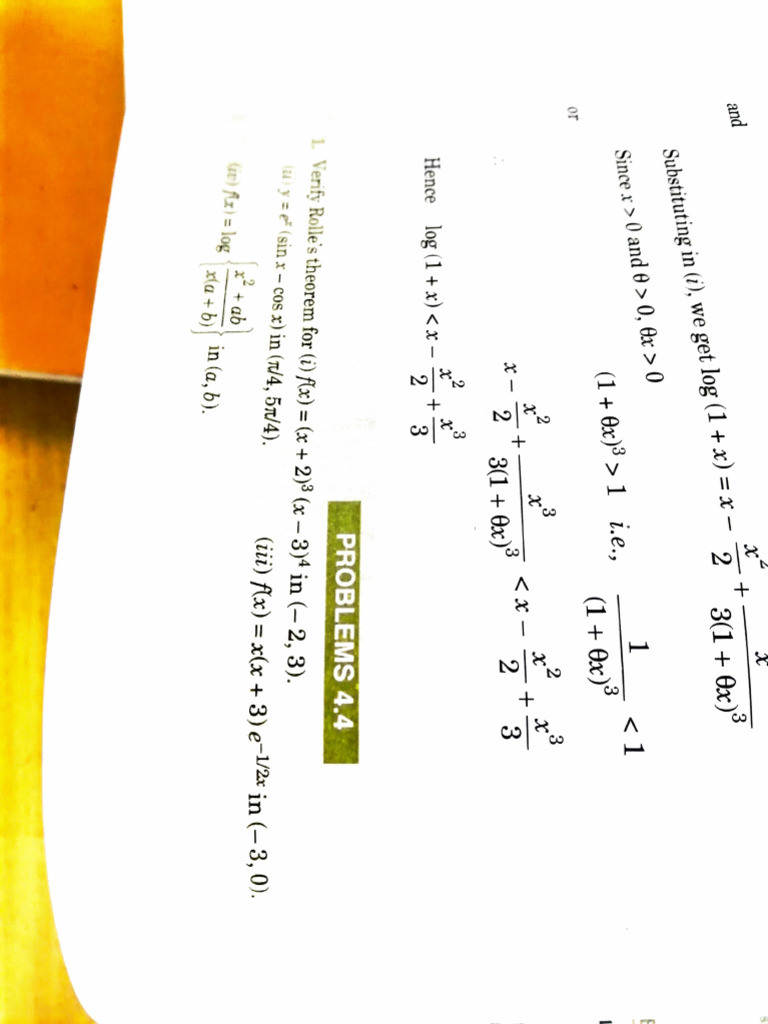 and
Substituting in (i), we get log (1 + x) = x − x²/2 + x/3(1 + θx)³
Since x > 0 and θ > 0, θx > 0
(1 + θx)³ > 1 i.e., 1/(1 + θx)³ < 1
or
∴ x − x²/2 + x³/3(1 + θx)³ < x − x²/2 + x³/3
Hence log (1 + x) < x − x²/2 + x³/3
PROBLEMS 4.4
1. Verify Rolle's theorem for (i) f(x) = (x + 2)³ (x − 3)⁴ in (− 2, 3).
(ii) y = eˣ (sin x − cos x) in (π/4, 5π/4). (iii) f(x) = x(x + 3) e^−1/2x in (− 3, 0).
(iv) f(x) = log {x² + ab/x(a + b)} in (a, b).